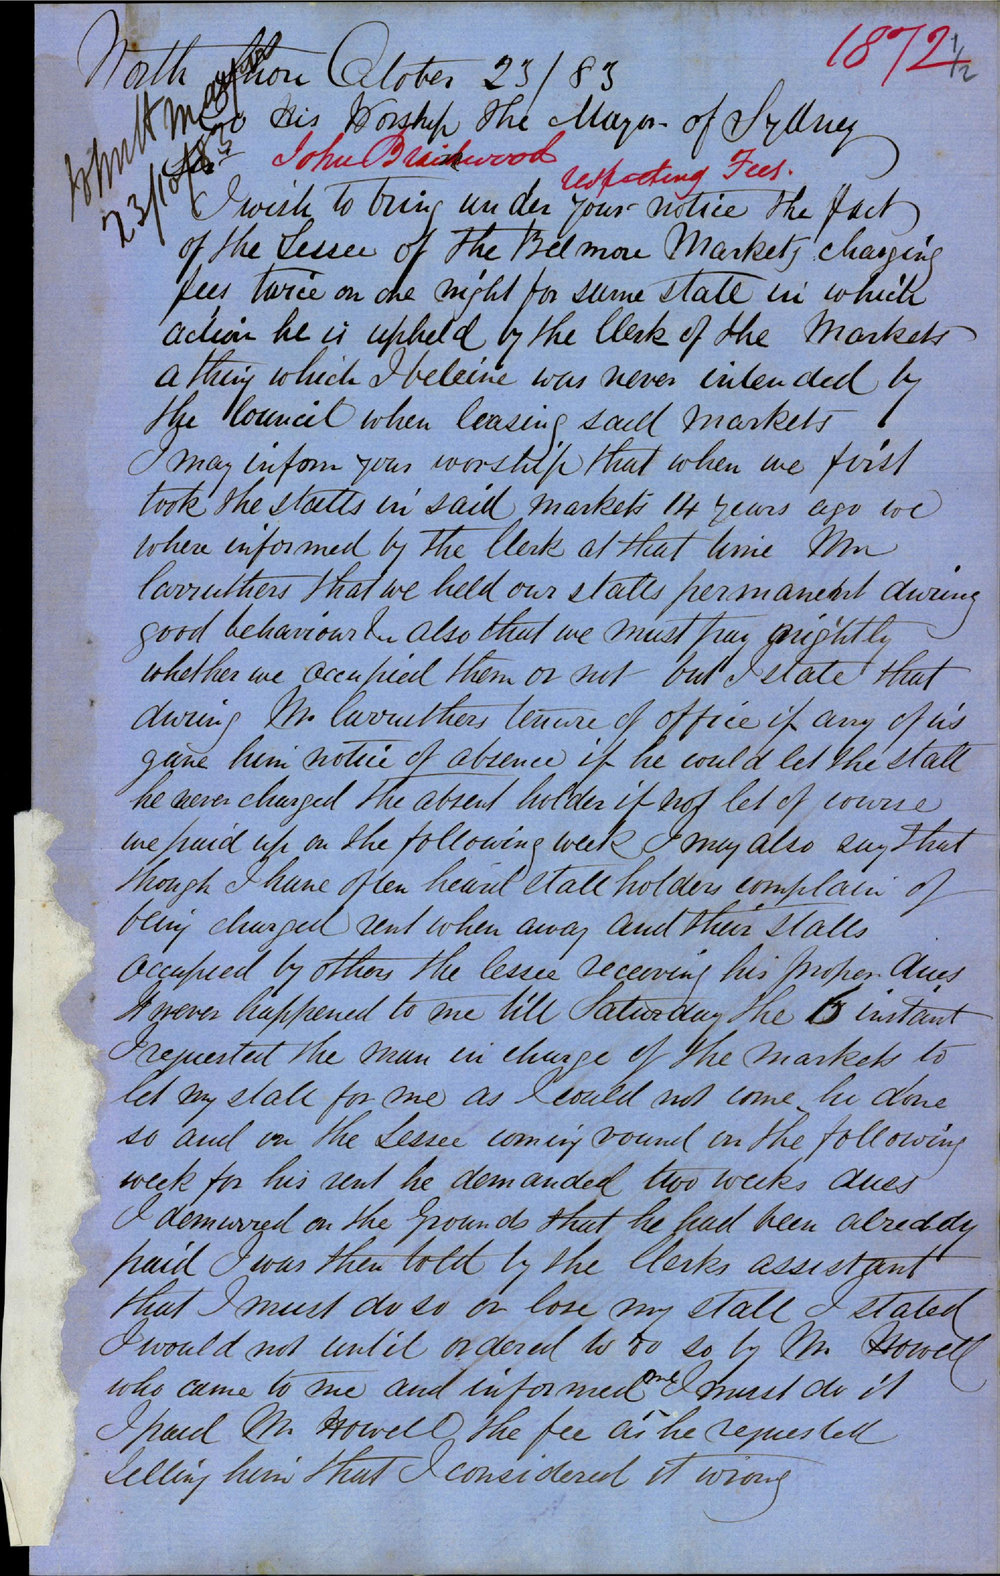 1872 1/2
North Shore October 23/83
To His Worship The Mayor of Sydney
Sir John Braidwood
respecting Fees.
23/10/83
I wish to bring under your notice the fact
of the Lessee of the Belmore Markets charging
fees twice on one night for same stall in which
action he is upheld by the Clerk of the Markets
a thing which I beleive was never intended by
the Council when leasing said markets
I may inform your worship that when we first
took the stalls in said markets 14 years ago we
where informed by the Clerk at that time Mr
Carruthers that we held our stalls permanent during
good behaviour also that we must pay nightly
whether we occupied them or not but I state that
during Mr Carruthers tenure of office if any of us
gave him notice of absence if he could let the stall
he never charged the absent holder if not let of course
we paid up on the following week I may also say that
though I have often heard stall holders complain of
being charged rent when away and their stalls
occupied by others the lessee receiving his proper dues
It never happened to me till Saturday the 6 instant
I requested the man in charge of the markets to
let my stall for me as I could not come he done
so and on the Lessee coming round on the following
week for his rent he demanded two weeks dues
I demurred on the grounds that he had been alreddy
paid I was then told by the Clerks assistant
that I must do so or lose my stall I stated
I would not until ordered to do so by Mr Howell
who came to me and informed me I must do it
I paid Mr Howell the fee as he requested
telling him that I considered it wrong